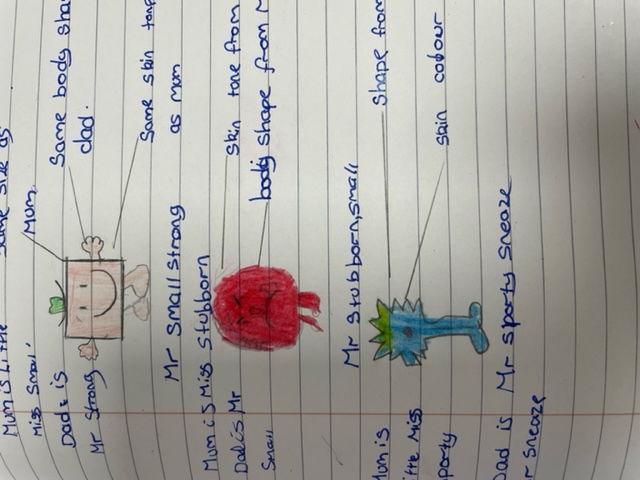 Mum is little
Miss Small'
Dad is
Mr Strong
same size as
Mum.
Same body sha
dad.
Same skin tone
as mum
Mr small strong
Mum is Miss Stubborn
Dad is Mr
Small
skin tone from
body shape from M
Mr Stubborn, small
Mum is
the Miss
porty
Dad is
r sneaze
shape from
skin colour
Mr sporty sneaze